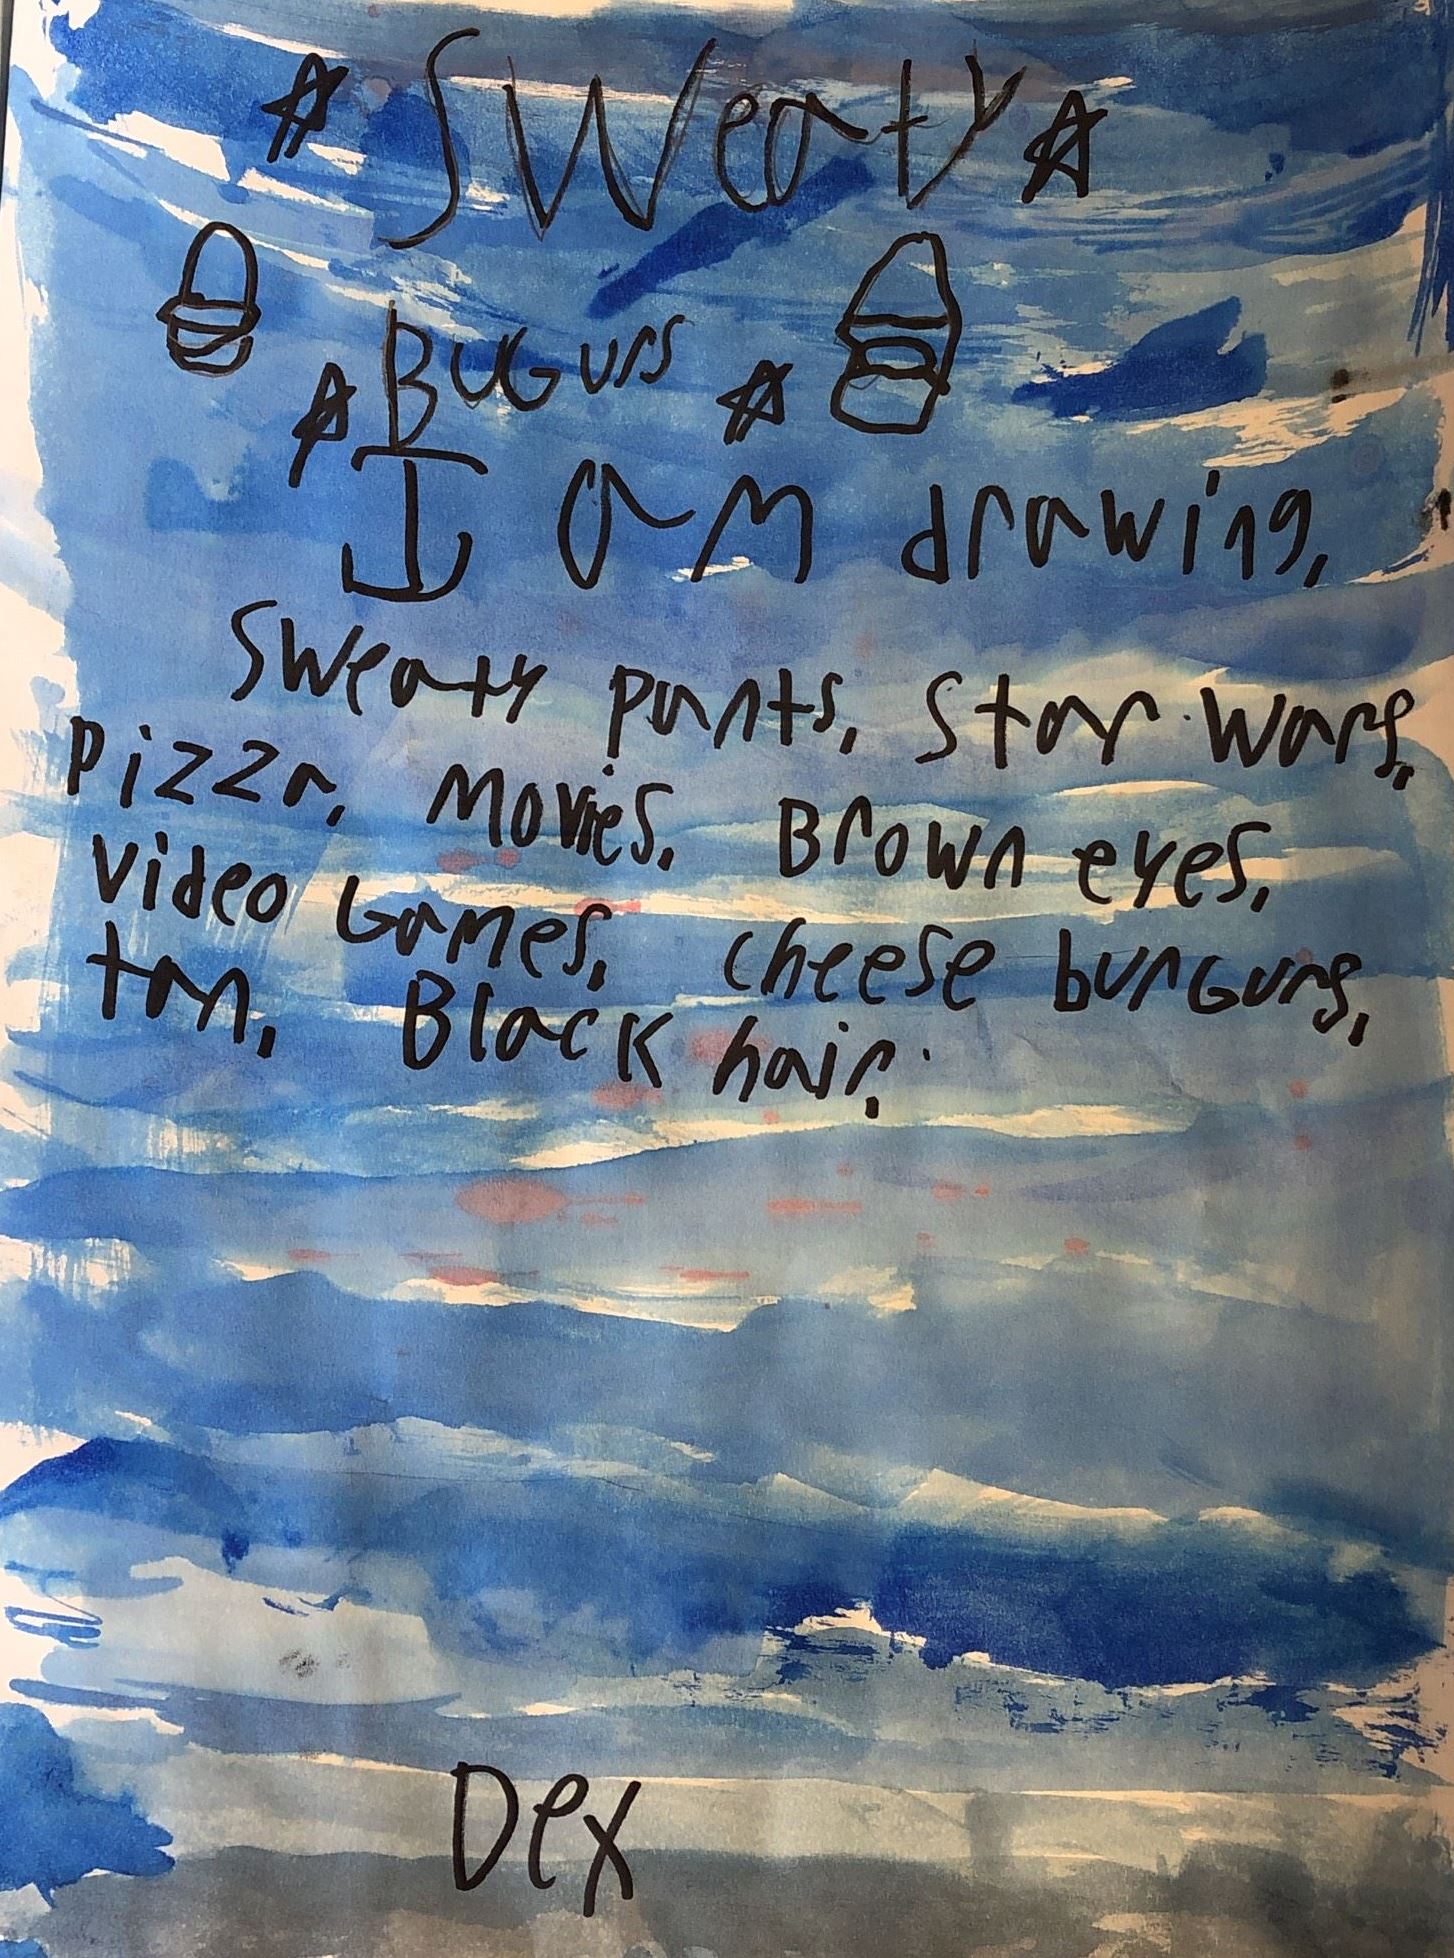 Sweaty
BUGurs
I am drawing,
Sweaty pants, Star wars,
Pizza, Movies, Brown eyes,
Video Games, cheese burGurs,
tan, Black hair,
Dex